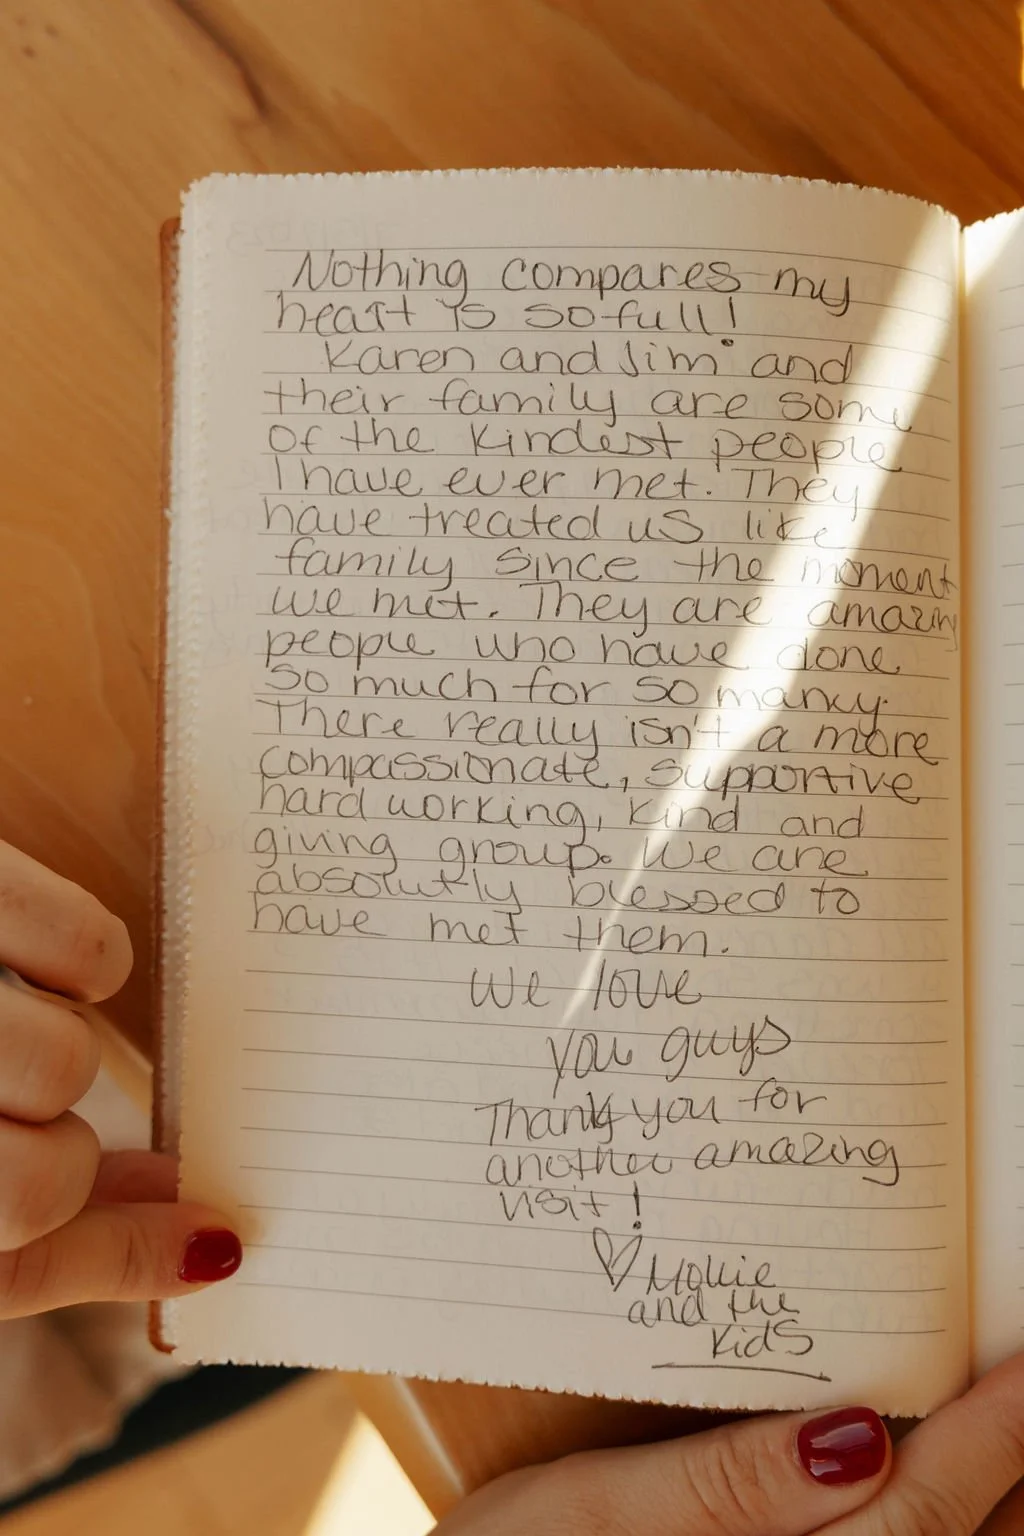 Nothing compares my
heart is so full!
Karen and Jim and
their family are some
of the kindest people
I have ever met. They
have treated us like
family since the moment
we met. They are amazing
people who have done
so much for so many.
There really isn't a more
compassionate, supportive
hard working, kind and
giving group. We are
absolutly blessed to
have met them.
We love
you guys
Thank you for
another amazing
visit!
♡ Mollie
and the
kids